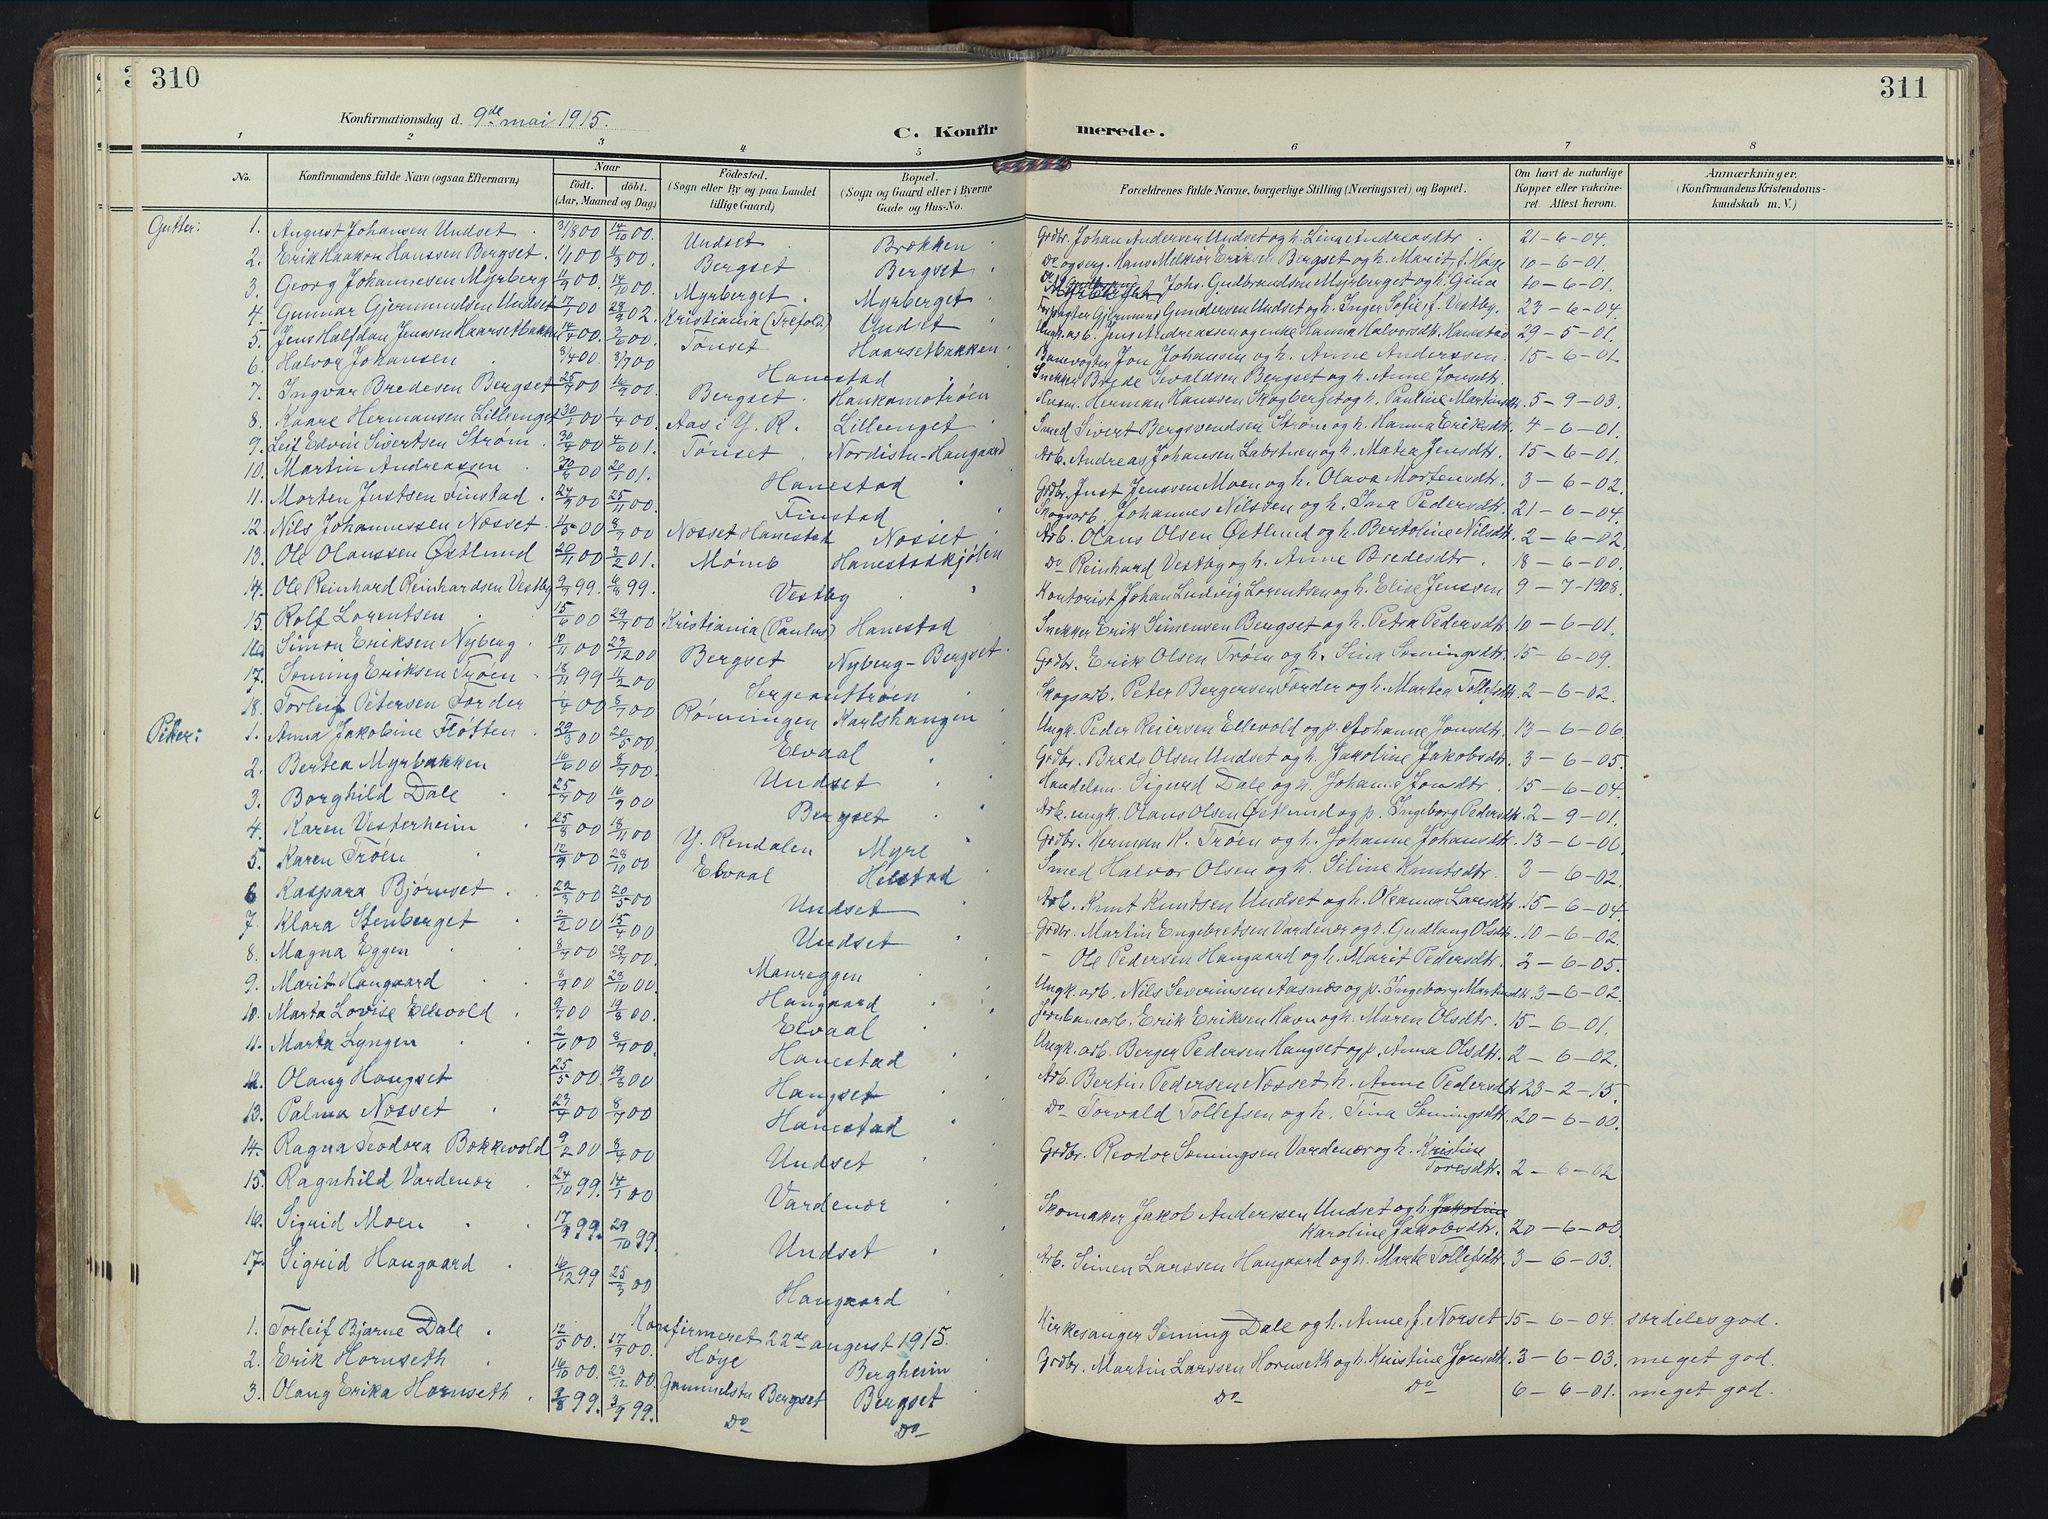 310
311
Konfirmationsdag d. 9de mai 1915.
C. Konfirmerede.
1 2 3 4 5 6 7 8
No. Konfirmandens fulde Navn (ogsaa Efternavn) Naar født. døbt. (Aar, Maaned og Dag) Fødested. (Sogn eller By og paa Landet tillige Gaard) Bopæl. (Sogn og Gaard eller i Byerne Gade og Hus-No. Forældrenes fulde Navne, borgerlige Stilling (Næringsvei) og Bopæl. Om havt de naturlige Kopper eller vakcineret. Attest herom. Anmærkninger. (Konfirmandens Kristendomskundskab m. V.)
Gutter: 1. August Johansen Undset 31/8 00 14/10 00. Undset Brækken Grdbr. Johan Andersen Undset og h. Lina Andreasdtr. 21-6-04.
2. Erik Haakon Hanssen Bergset 1/1 00 11/3 00. Bergset Bergset Do og serg. Hans Melkior Eriksen Bergset og h. Marit f. Høye 10-6-01.
3. Georg Johannesen Myrberg 11/9 00 14/10 00. Myrberget Myrberget Johs. Gudbrandsen Myrberget og h. Gina 10-6-01.
4. Gunnar Gjermundsen Undset 17/7 00 28/9 02. Kristiania (Trefold.) Undset Gjermund Gundersen Undset og h. Inger Sofie, f. Vestby. 23-6-04.
5. Jens Halfdan Jenssen Haarsetbakken 14/4 00. 3/6 00. Tønset Haarsetbakken Ungk. arb. Jens Andreassen og enke Hanna Halvorsdtr. Hanestad 29-5-01.
6. Halvor Johansen 8/4 00. 8/7 00 Hanestad Banevogter Jon Johansen og h. Anne Anderssen. 15-6-01
7. Ingvar Bredesen Bergset 25/7 00 16/9 00. Bergset Haukamotrøen Snekker Brede Sivaldsen Bergset og h. Anne Jonsdtr.
8. Kaare Hermansen Lilleenget 30/1 00 1/4 00. Aas i Y. R. Lilleenget Husm. Herman Hanssen Skogberget og h. Pauline Martinsdtr. 5-9-03.
9. Leif Edvin Sivertsen Strøm 30/7 00 4/6 01. Tønset Nordistu-Haugaard Smed Sivert Bergsvendsen Strøm og h. Hanna Eriksdtr. 4-6-01.
10. Martin Andreassen 30/6 00 20/1 01. Hanestad Arb. Andreas Johansen Labstuen og h. Matea Jensdtr. 15-6-01.
11. Morten Justsen Finstad 24/9 00 25/11 00. Finstad Grdbr. Just Jenssen Moen og h. Olava Mortensdtr. 3-6-02.
12. Nils Johannessen Næsset 4/5 00 8/7 00 Næsset Hanestad Næsset Skogsarb. Johannes Nilssen og h. Ina Pedersdtr. 21-6-04.
13. Ole Olaussen Østlund 20/11 00 3/2 01. Mømb Hanestadkjølen Arb. Olaus Olsen Østlund og h. Bertoline Nilsdtr. 2-6-02.
14. Ole Reinhard Reinhardsen Vestby 9/7 99. 6/8 99. Vestby Do Reinhard Vestby og h. Anne Bredesdtr. 18-6-00.
15. Rolf Lorentsen 15/6 00 29/7 00 Kristiania (Paulus) Hanestad Kontorist Johan Ludvig Lorentsen og h. Elise Jenssen 9-7-1908.
16. Simon Eriksen Nyberg 10/11 00 23/12 00 Bergset Nyberg-Bergset Snekker Erik Simensen Bergset og h. Petra Pedersdtr. 10-6-01.
17. Søming Eriksen Trøen 18/11 99 4/2 00. Sergeanttrøen Grdbr. Erik Olsen Trøen og h. Sina Sømingsdtr. 15-6-09.
18. Torleif Petersen Førder 1/4 00 8/7 00. Rønningen Karlshaugen Skogsarb. Peter Bergersen Førder og h. Martea Tollefsdtr. 2-6-02.
Piker: 1. Anna Jakobine Fløtten 29/3 00 20/5 00. Elvaal Ungk. Peder Reiersen Ellevold og p. Johanne Jonsdtr. 13-6-06.
2. Bertea Myrbakken 16/6 00 8/7 00 Undset Grdbr. Brede Olsen Undset og h. Jakoline Jakobsdtr. 3-6-05.
3. Borghild Dale 25/7 00 16/9 00 Bergset Handelsm. Sigurd Dale og h. Johanne Jonsdtr. 15-6-04.
4. Karen Vesterheim 25/8 00 18/11 00 Y. Rendalen Myre Arb. ungk. Olaus Olsen Østlund og p. Ingeborg Pedersdtr. 2-9-01.
5. Karen Trøen 12/9 00 28/10 00 Elvaal Helstad Grdbr. Herman K. Trøen og h. Johanne Johansdtr. 13-6-06.
6 Kaspara Bjørnset 22/3 00 20/5 00 Undset Smed Halvor Olsen og h. Siline Knutsdtr. 3-6-02.
7. Klara Stenberget 2/2 00 15/4 00 Undset Arb. Knut Knutsen Undset og h. Oleanna Larsdtr. 15-6-04.
8. Magna Eggen 8/7 00 29/7 00. Maureggen Grdbr. Martin Engebretsen Vardenær og h. Gudlaug Olsdtr. 10-6-02.
9. Marit Haugaard 8/9 00 28/10 00. Haugaard - Ole Pedersen Haugaard og h. Marit Pedersdtr. 2-6-05.
10. Marta Lovise Ellevold 9/7 00 19/8 00. Elvaal Ungk. arb. Nils Severinsen Aasnæs og p. Ingeborg Martinsdtr. 3-6-02.
11. Marta Lyngen 2/6 00 8/7 00 Hanestad Jernbanearb. Erik Eriksen Havn og h. Maren Olsdtr. 15-6-01.
12. Olaug Haugset 25/5 00. 19/8 00 Haugset Ungk. arb. Berger Pedersen Haugset og p. Anna Olsdtr. 2-6-02.
13. Palma Næsset 23/4 00 8/7 00 Hanestad Arb. Bertin Pedersen Næsset, h. Anne Pedersdtr. 23-2-15.
14. Ragna Teodora Bakkevold 9/2 00 8/4 00 Undset Do Torvald Tollefsen og h. Tina Sømingsdtr. 20-6-00.
15. Ragnhild Vardenær 24/10 99. 14/1 00 Vardenær Grdbr. Reodor Sømingsen Vardenær og h. Kristine Toresdtr. 2-6-02
16. Sigrid Moen 17/9 99. 29/10 99. Undset Skomaker Jakob Anderssen Undset og h. Jakoline Karoline Jakobsdtr. 20-6-00.
17. Sigrid Haugaard 16/12 99 25/3 00 Haugaard Arb. Simen Larssen Haugaard og h. Marte Tollefsdtr. 3-6-03.
Konfirmeret 22de august 1915.
1. Torleif Bjarne Dale 12/5 00. 17/9 00. Høye Bergheim Kirkesanger Søming Dale og h. Anne, f. Norset 15-6-04. særdeles god.
2. Erik Hornseth 16/10 00. 23/12 00. Gammelstu Bergset Bergset Grdbr. Martin Larssen Hornseth og h. Kristine Jonsdtr. 3-6-03. meget god.
3. Olaug Erika Hornseth 2/8 99. 3/9 99. Do Do Do Do 6-6-01. meget god.